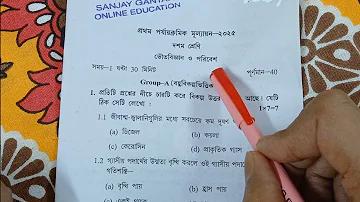 SANJAY GANTA
ONLINE EDUCATION
প্রথম পর্যায়ক্রমিক মূল্যায়ন-২০২৫
দশম শ্রেণি
ভৌতবিজ্ঞান ও পরিবেশ
সময়—1 ঘণ্টা 30 মিনিট পূর্ণমান—40
Group-A (বহুবিকল্পভিত্তিক
1. প্রতিটি প্রশ্নের নীচে চারটি করে বিকল্প উত্তর আছে। যেটি
ঠিক সেটি লেখো : 1×7=7
1.1 জীবাশ্ম-জ্বালানিগুলির মধ্যে সবচেয়ে কম দূষণ
(a) ডিজেল (b) কয়লা
(c) কেরোসিন (d) প্রাকৃতিক গ্যাস
1.2 গ্যাসীয় পদার্থের উষ্ণতা বৃদ্ধি করলে ওই গ্যাসীয়
গতিশক্তি—
(a) বৃদ্ধি পায় (b) হ্রাস পায়